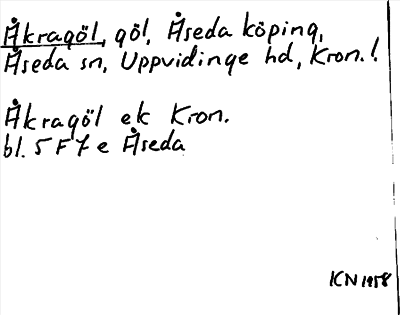 Åkragöl, göl, Åseda köping,
Åseda sn, Uppvidinge hd, Kron. l.
Åkragöl ek Kron.
bl. 5 F 7 e Åseda
ICN 1958